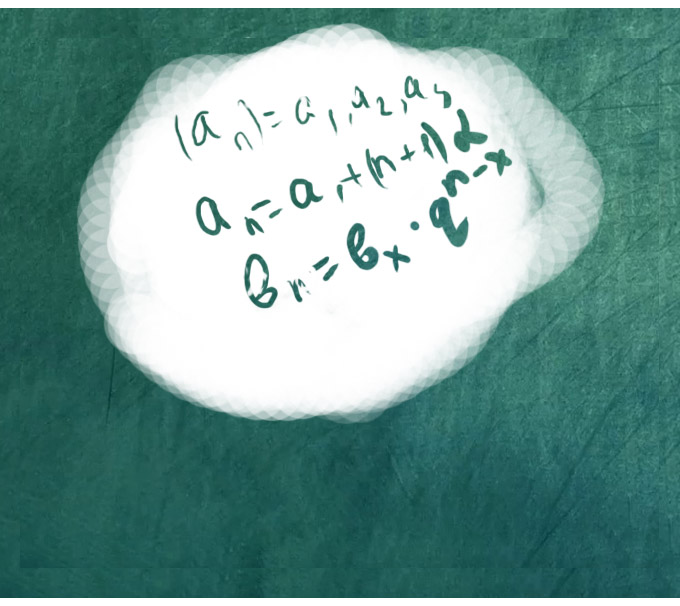 (aₙ)=a₁,a₂,a₃
aₙ=a₁+(n+1)d
bₙ=bₓ·qⁿ⁻ˣ